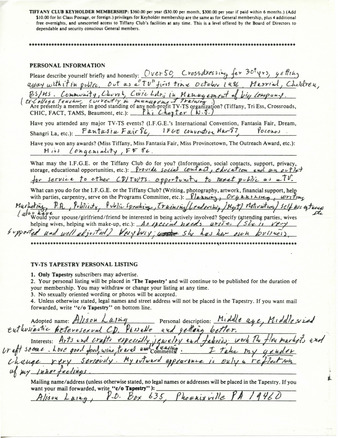 TIFFANY CLUB KEYHOLDER MEMBERSHIP: $360.00 per year ($30.00 per month, $300.00 per year if paid within 6 months.) (Add
$10.00 for 1st Class Postage, or foreign.) privileges for Keyholder membership are the same as for General membership, plus 4 additional
free overnights, and unescorted access to Tiffany Club's facilities at any time. This is a level offered by the Board of Directors to
dependable and security conscious General members.
PERSONAL INFORMATION
Please describe yourself briefly and honestly: Over 50, Crossdressing for 30+ yrs, getting
away with it in public. Out as a "TV" first time October 1986. Married, Children,
BS/MS. Community, Church, Civic Ldr, in Management of big company.
Ex College Teacher, currently in management training
Are you presently a member in good standing of any non-profit TV-TS organization? (Tiffany, Tri Ess, Crossroads,
CHIC, FACT, TAMS, Beaumont, etc.):
Have you attended any major TV-TS events? (I.F.G.E.'s International Convention, Fantasia Fair, Dream,
Shangri La, etc.): Fantasia Fair 86, IFGE Convention, Mar 87, Poconos
Have you won any awards? (Miss Tiffany, Miss Fantasia Fair, Miss Provincetown, The Outreach Award, etc.):
Miss Congeniality, FF 86
What may the I.F.G.E. or the Tiffany Club do for you? (Information, social contacts, support, privacy,
storage, educational opportunities, etc.): Provide social contact, education and an outlet
for service to other CD/TV/TS. opportunity to meet public as a TV.
What can you do for the I.F.G.E. or the Tiffany Club? (Writing, photography, artwork, financial support, help
with parties, carpentry, serve on the Programs Committee, etc.): Planning, Organizing, writing
Marketing, P.R., Publicity, Public Speaking, Training/Leadership/Mgmt/Motivation/Self acceptance
Would your spouse/friend/friend be interested in being actively involved? Specify (attending parties, wives
helping wives, helping with make-up, etc.): As special needs arise. (She is very
supportive and well adjusted) Very busy, she has her own business.
TV-TS TAPESTRY PERSONAL LISTING
1. Only Tapestry subscribers may advertise.
2. Your personal listing will be placed in 'The Tapestry' and will continue to be published for the duration of
your membership. You may withdraw or change your listing at any time.
3. No sexually oriented wording or photos will be accepted.
4. Unless otherwise stated, legal names and street address will not be placed in the Tapestry. If you want mail
forwarded, write "c/o Tapestry" on bottom line.
Adopted name: Alison Laing Personal description: Middle age, Middle sized
enthusiastic heterosexual CD. Passable and getting better.
Interests: Arts and crafts especially jewelry and fabrics, with the flea markets and
craft scenes. Love good food, wine, travel and Comments: I take my gender
change very seriously. My outward appearance is only a reflection
of my inner feelings.
Mailing name/address (unless otherwise stated, no legal names or addresses will be placed in the Tapestry. If you
want your mail forwarded, write "c/o Tapestry"):
Alison Laing, P.O. Box 635, Phoenixville PA 19460